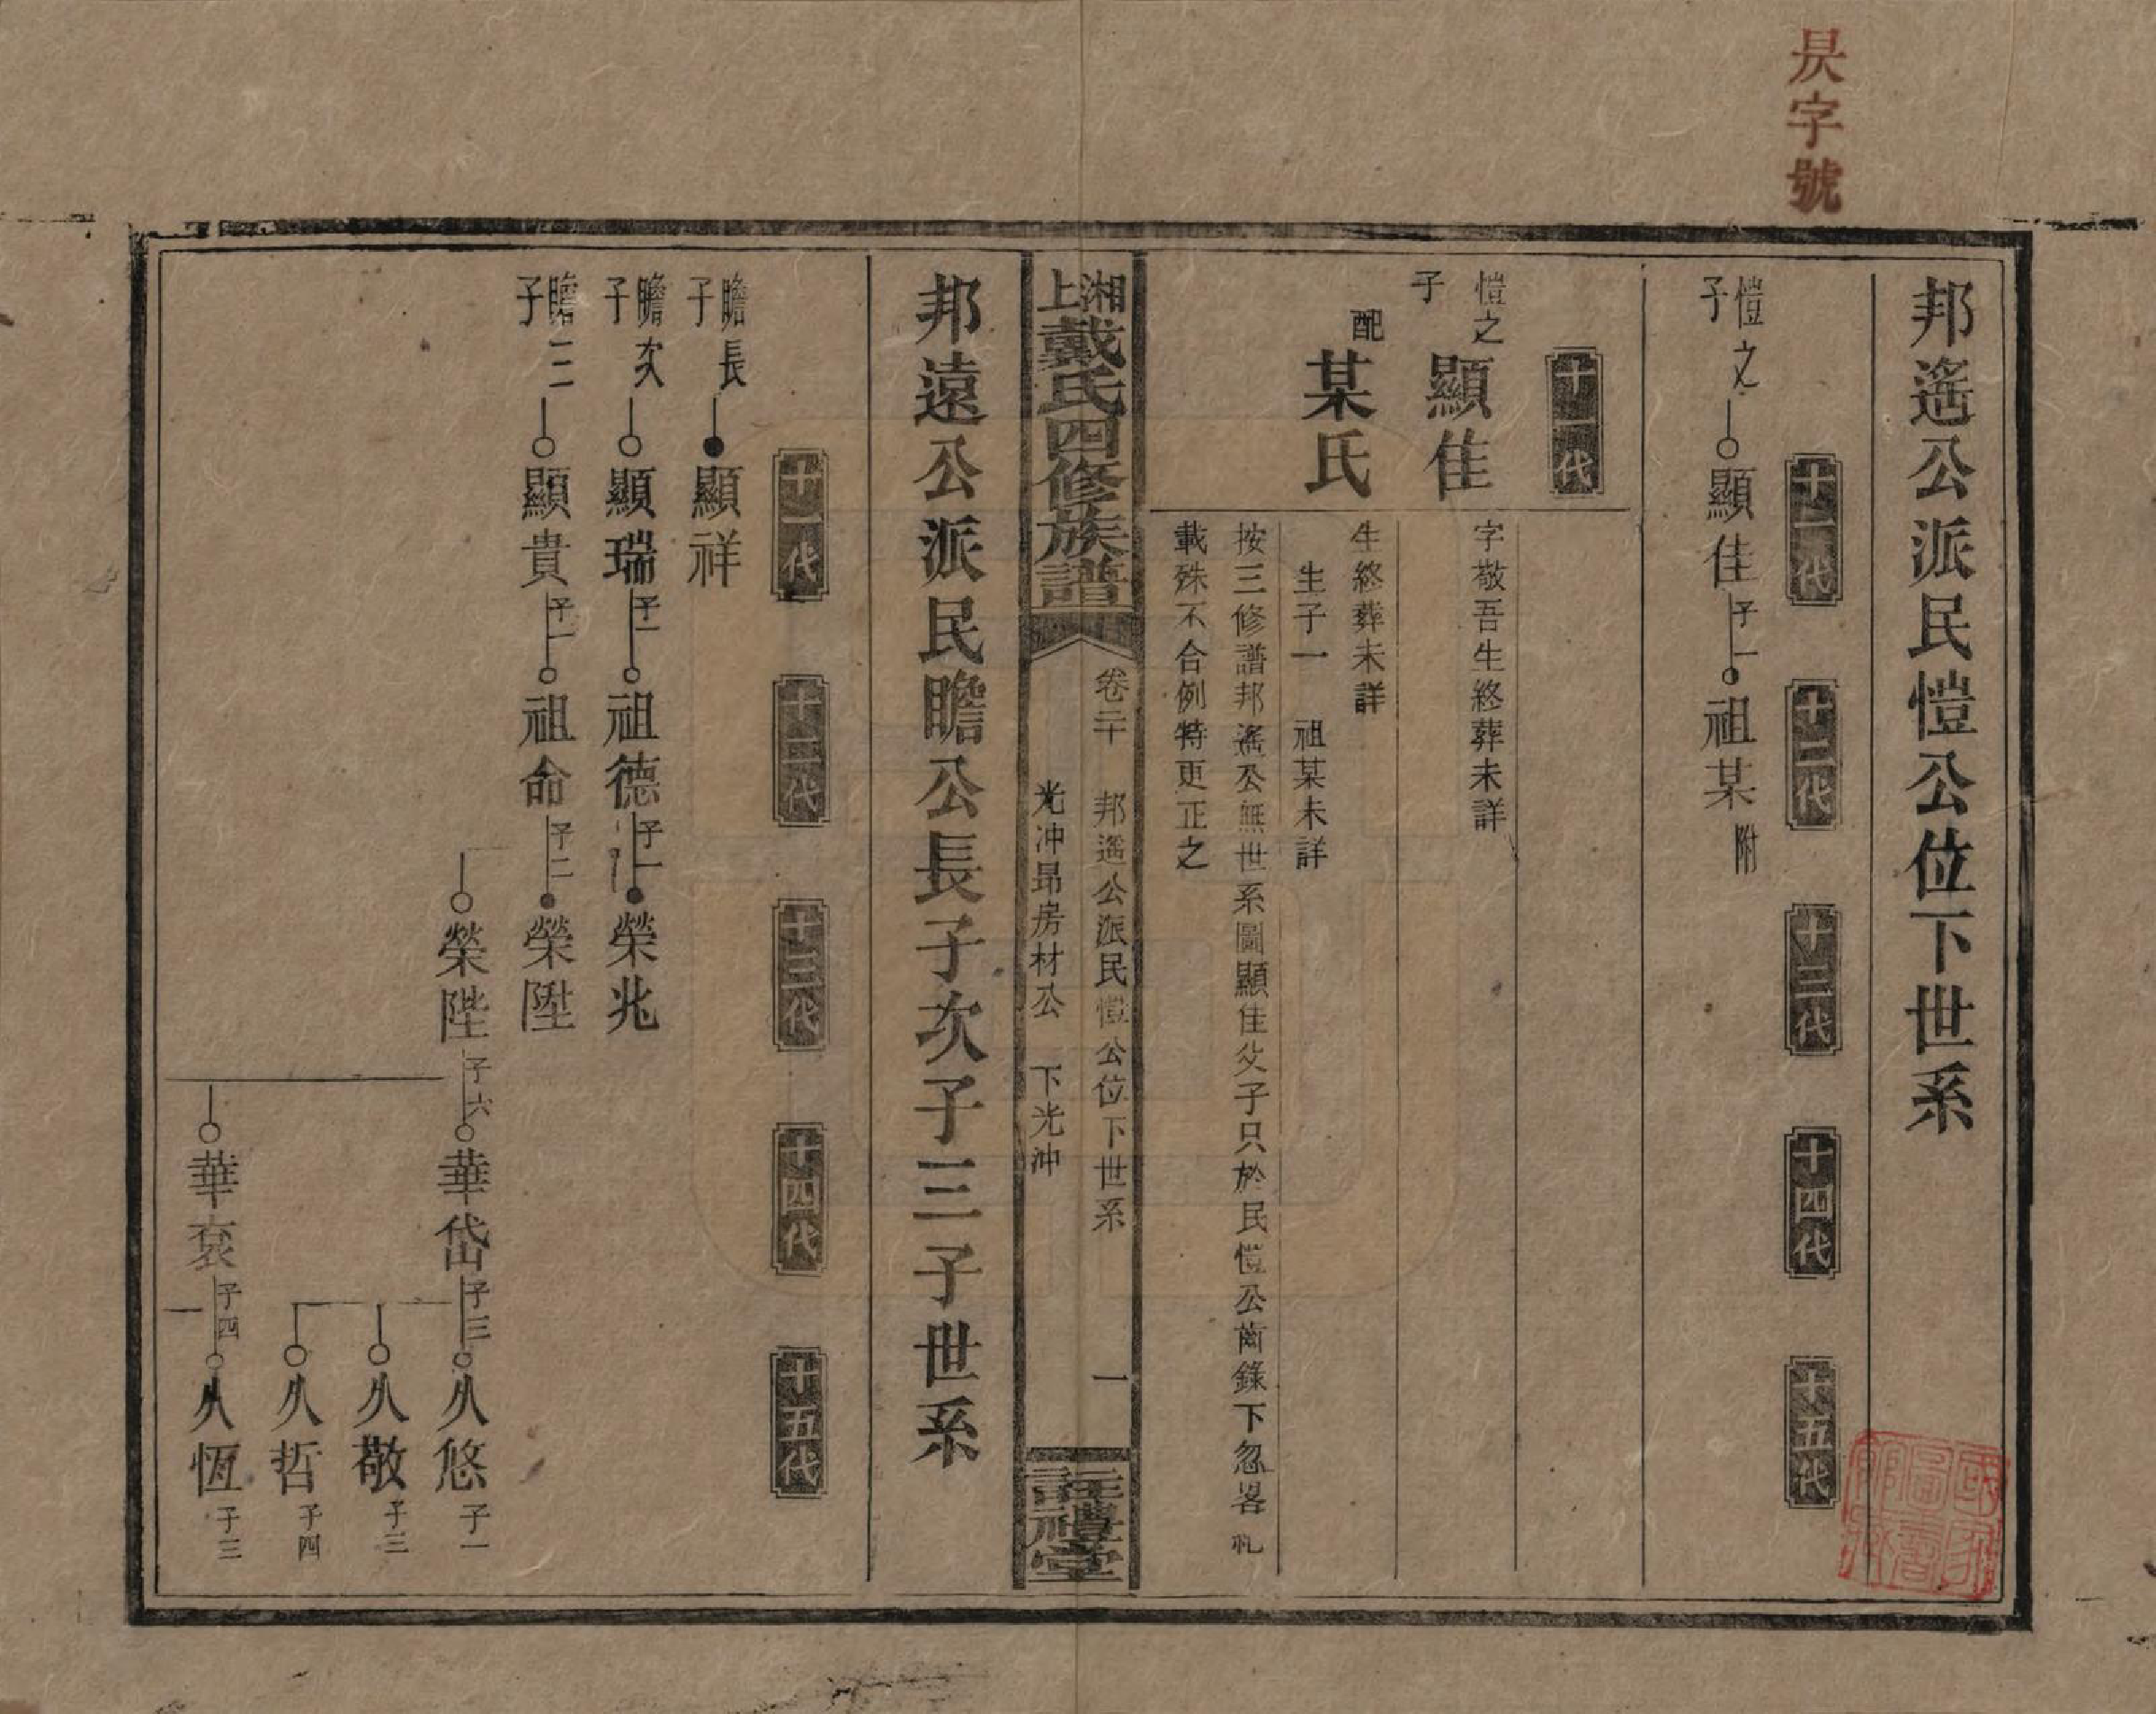 昃字號
邦遙公派民愷公位下世系
十一代
十二代
十三代
十四代
十五代
愷之子
顯佳 子一 祖某 附
十一代
愷之子 顯佳
字敬吾生終葬未詳
配 某氏
生終葬未詳
生子一 祖某未詳
按三修譜邦遙公無世系圖顯佳父子只於民愷公齒錄下忽畧
載殊不合例特更正之
上湘戴氏四修族譜
卷二十 邦遙公派民愷公位下世系 一
光冲昂房材公 下光冲
註禮堂
邦遠公派民瞻公長子次子三子世系
十一代
十二代
十三代
十四代
十五代
瞻長子 顯祥
瞻次子 顯瑞 子一 祖德 子一 榮兆
瞻三子 顯貴 子一 祖命 子二 榮陞
榮陛 子六 華岱 子三 久悠 子一
久敬 子三
久哲 子四
華袞 子四 久恆 子三
國家圖書館藏